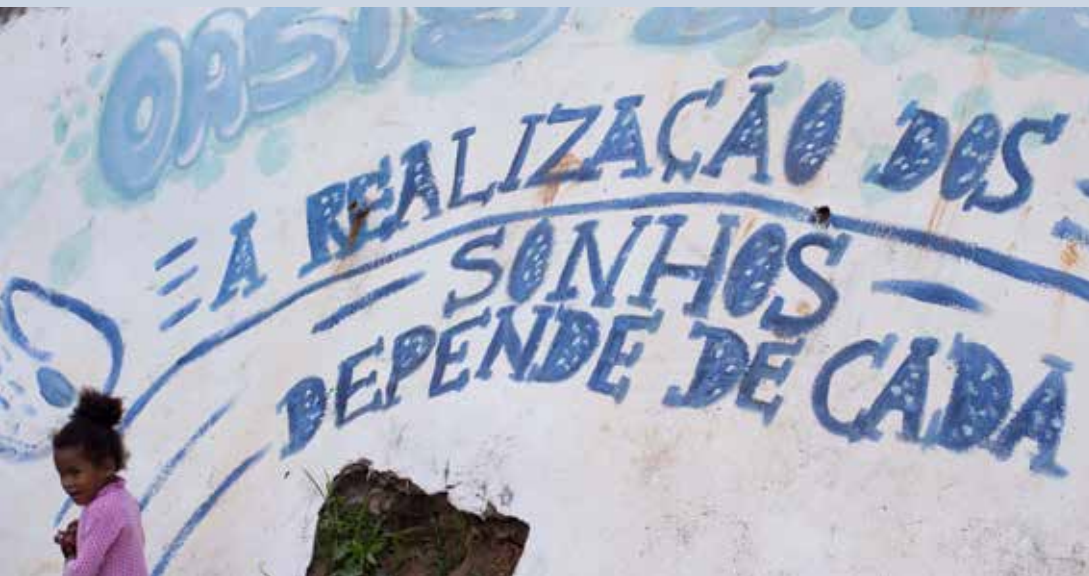 OASIS
A REALIZAÇÃO DOS
SONHOS
DEPENDE DE CADA